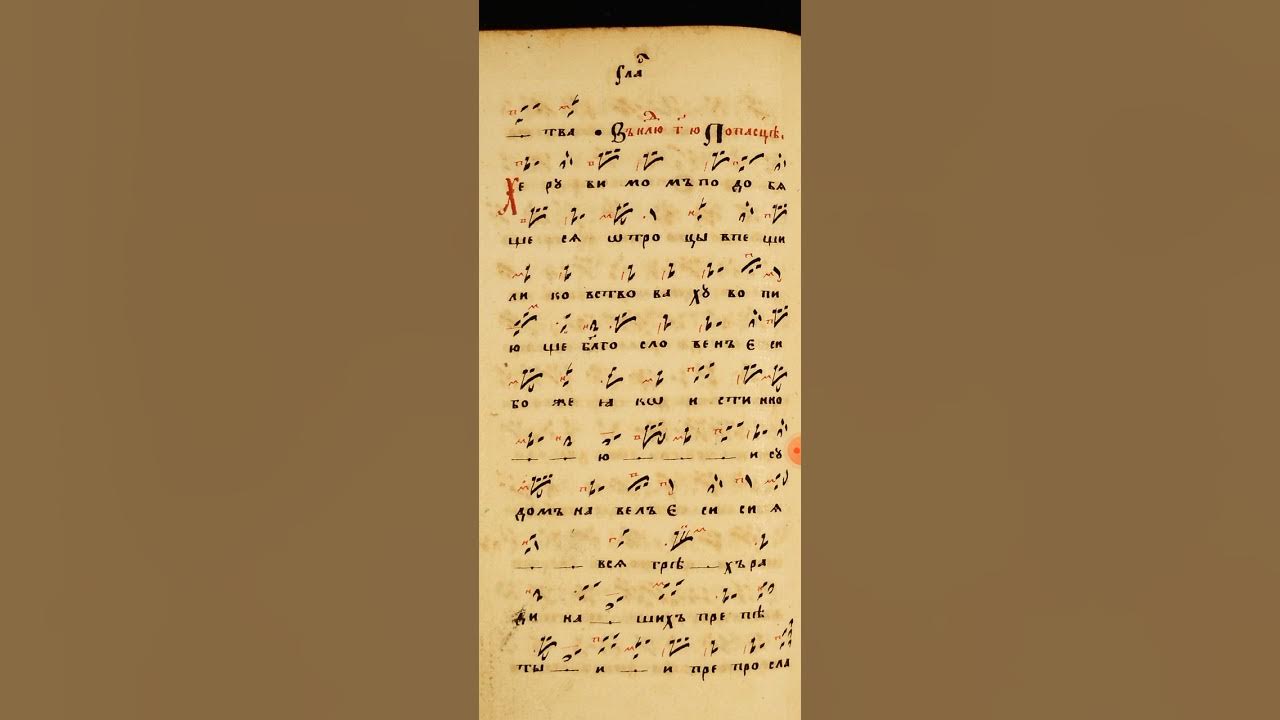 тва • Въ н҃лю д҃ ю по пасцѣ.
Хе ру ви мо мъ по до бя
ще ся ѿтро цы впе щи
ли ко вство ва хꙋ во пи
ю ще бл҃го сло ве нъ є си
бо же ꙗ кѡ и сти нно
ю и сꙋ
домъ на велъ є си си я
вся грѣ хъ ра
ди на шихъ пре пѣ
ты и и пре про сла